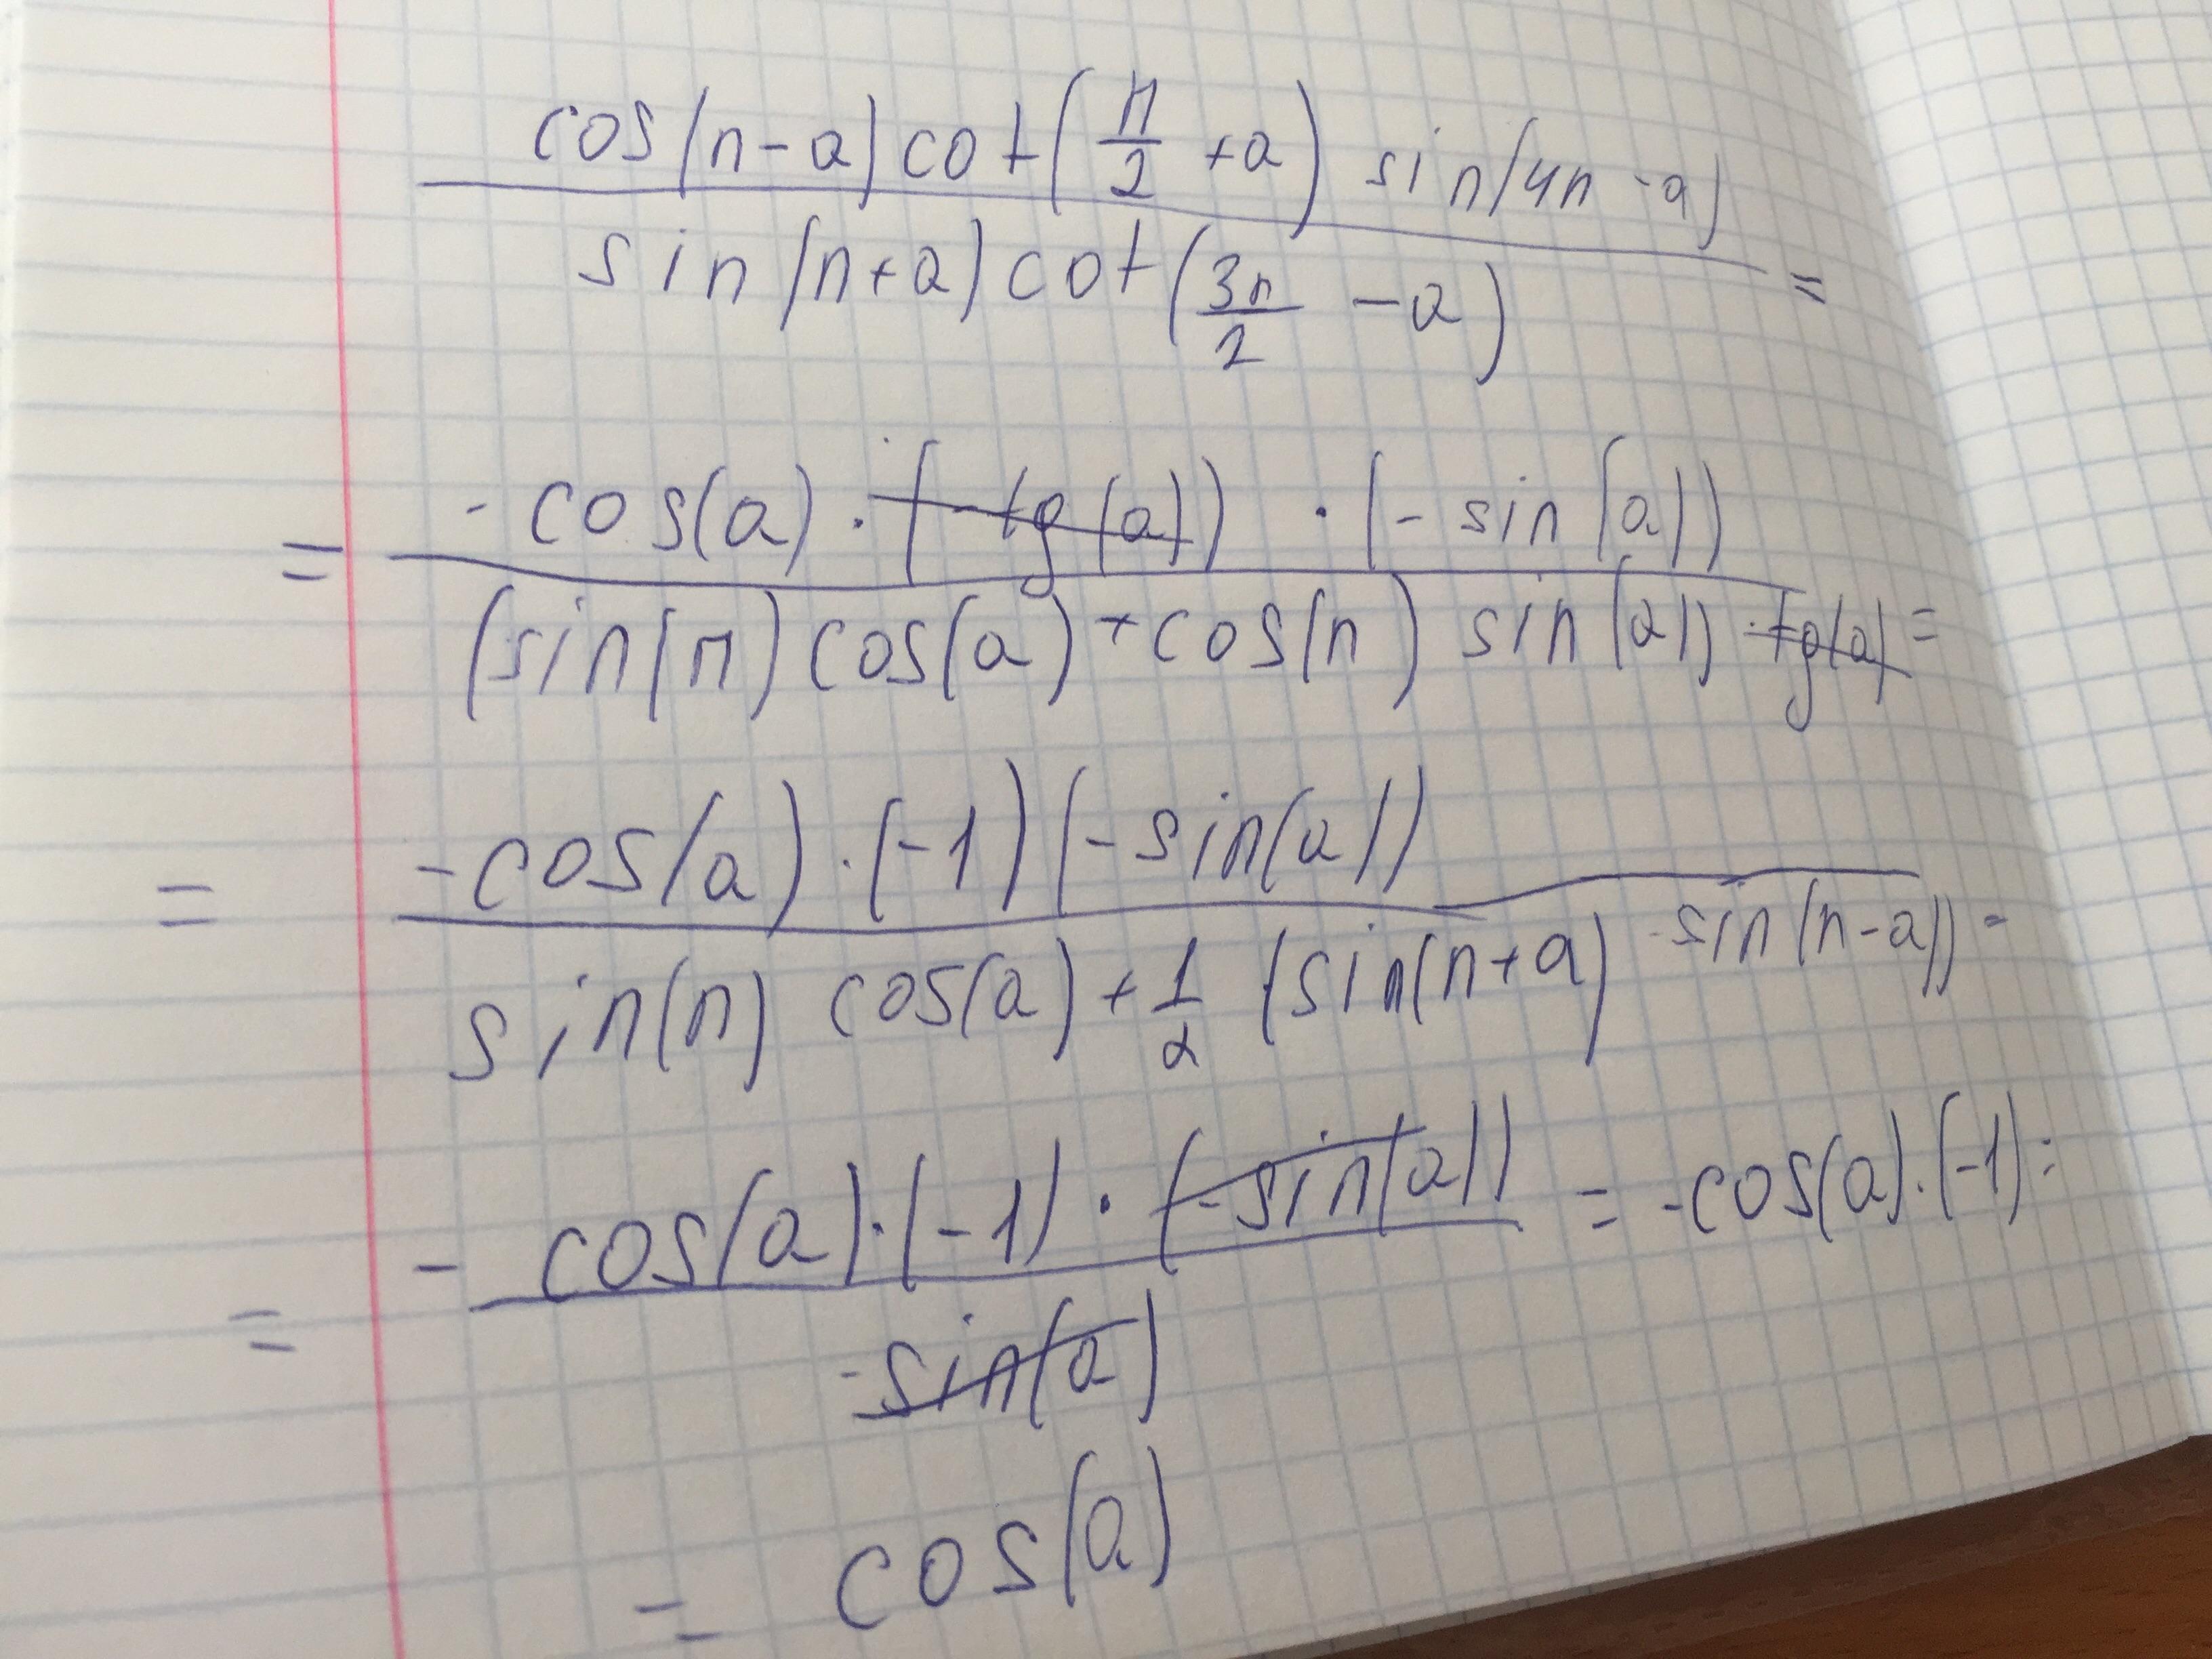 cos(π-a) cot(π/2 +a) sin(4π -a)
sin(π+a) cot(3π/2 -a) =
= -cos(a) · (-tg(a)) · (-sin(a))
(sin(π) cos(a) + cos(π) sin(a)) · tg(a) =
= -cos(a) · (-1) (-sin(a))
sin(π) cos(a) + 1/2 (sin(π+a) - sin(π-a)) =
= - cos(a) · (-1) · (-sin(a)) = -cos(a) · (-1) =
-sin(a)
= cos(a)